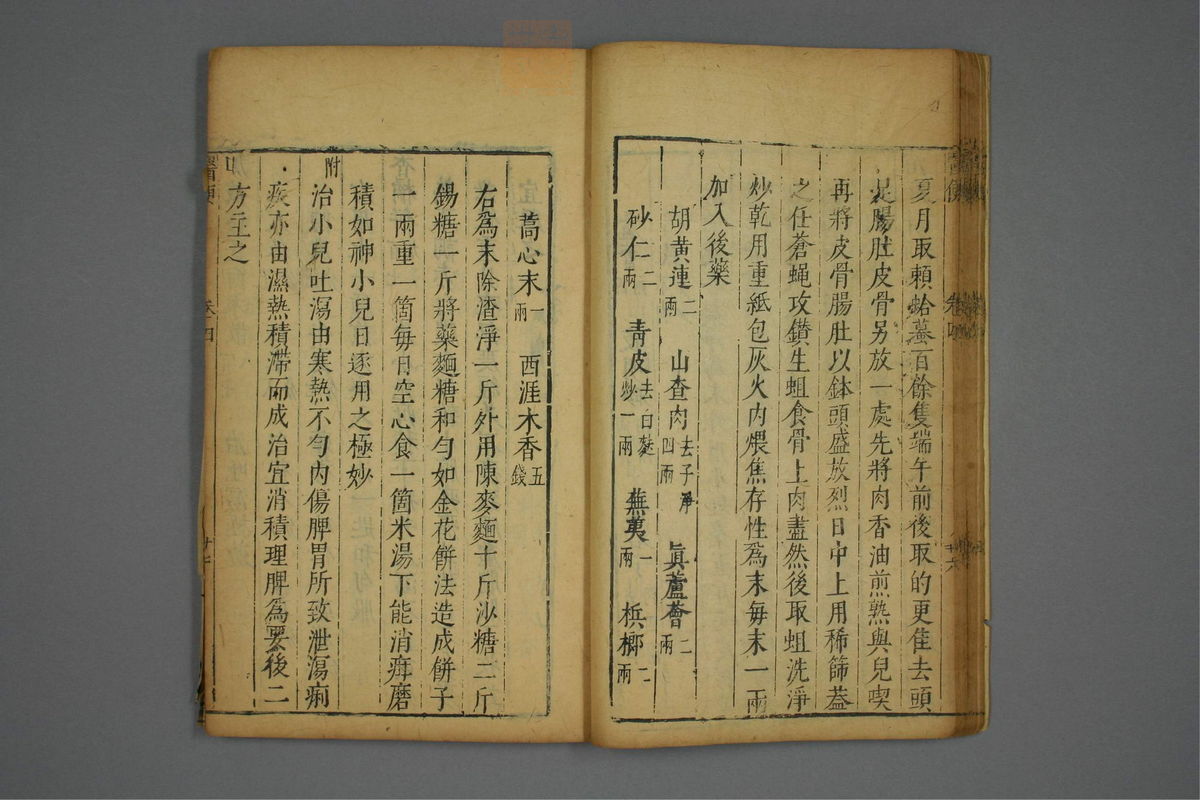 夏月取賴蛤蟇百餘隻端午前後取的更佳去頭
足腸肚皮骨另放一處先將肉香油煎熟與兒喫
再將皮骨腸肚以鉢頭盛放烈日中上用稀篩蓋
之任蒼蝇攻鑚生蛆食骨上肉盡然後取蛆洗淨
炒乾用重紙包灰火内煨焦存性爲末每末一兩
加入後藥
胡黄連二兩 山查肉去子淨四兩 眞蘆薈二兩
砂仁二兩 靑皮去白麩炒一兩 蕪荑一兩 梹榔二兩
蒿心末一兩 西涯木香五錢
右爲末除渣淨一斤外用陳麥麵十斤沙糖二斤
錫糖一斤將藥麵糖和勻如金花餅法造成餅子
一兩重一箇每日空心食一箇米湯下能消痞磨
積如神小兒日逐用之極妙
附治小兒吐瀉由寒熱不勻内傷脾胃所致泄瀉痢
疾亦由濕熱積滯而成治宜消積理脾爲要後二
方主之
卷四